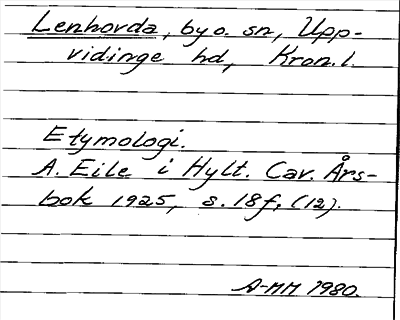 Lenhovda, by o. sn, Upp-
vidinge hd, Kron. l.
Etymologi.
A. Eile i Hylt. Cav. Års-
bok 1925, s. 18 f, (12).
A-MM 1980.